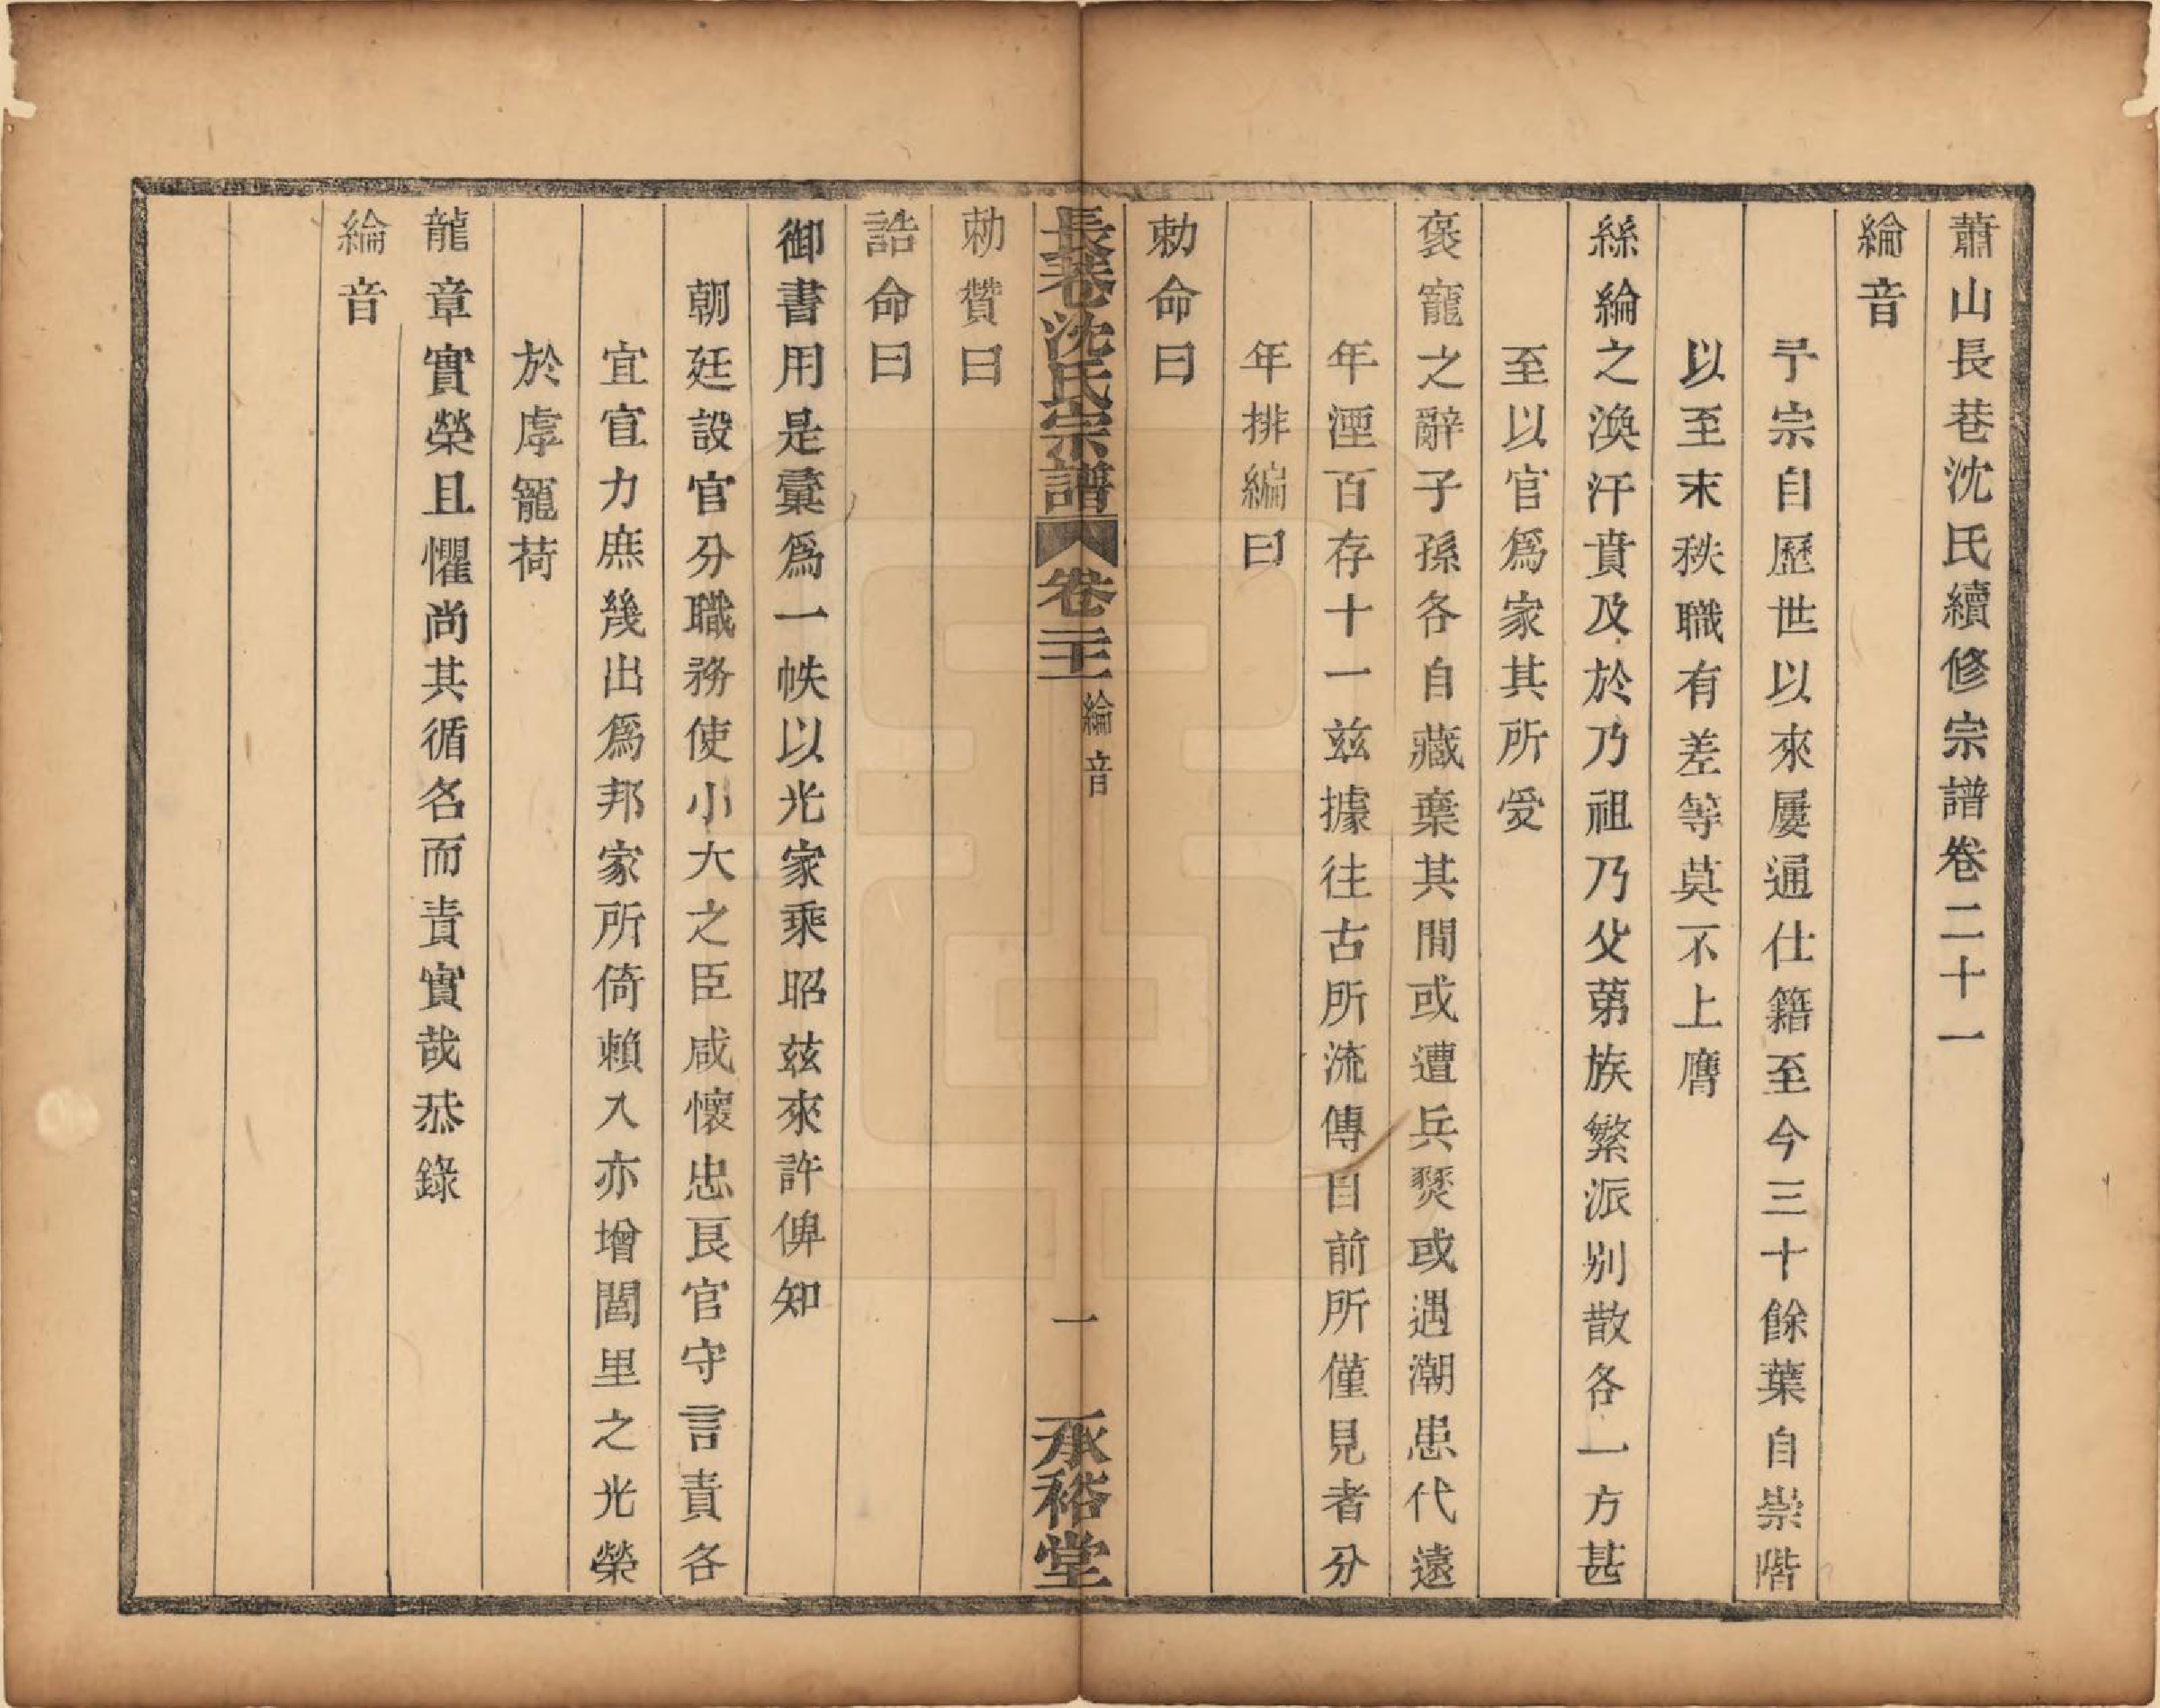 蕭山長巷沈氏續修宗譜卷二十一
綸音
予宗自歷世以來屢通仕籍至今三十餘葉自崇階
以至末秩職有差等莫不上膺
絲綸之渙汗賁及於乃祖乃父苐族繁派别散各一方甚
至以官爲家其所受
褒寵之辭子孫各自藏棄其間或遭兵燹或遇潮患代遠
年湮百存十一兹據往古所流傳目前所僅見者分
年排編曰
勅命曰
長巷沈氏宗譜 卷二十一 綸音 一 承裕堂
勅贊曰
誥命曰
御書用是彚爲一帙以光家乘昭兹來許俾知
朝廷設官分職務使小大之臣咸懷忠良官守言責各
宜宣力庶幾出爲邦家所倚賴入亦增閭里之光榮
於虖寵荷
龍章實榮且懼尚其循名而責實哉恭錄
綸音